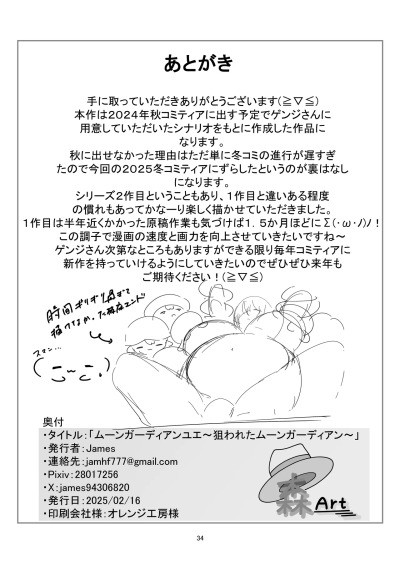 あとがき
手に取っていただきありがとうございます(≧▽≦)
本作は2024年秋コミティアに出す予定でゲンジさんに
用意していただいたシナリオをもとに作成した作品に
なります。
秋に出せなかった理由はただ単に冬コミの進行が遅すぎ
たので今回の2025冬コミティアにずらしたというのが裏はなし
になります。
シリーズ2作目ということもあり、1作目と違いある程度
の慣れもあってかなーり楽しく描かせていただきました。
1作目は半年近くかかった原稿作業も気づけば1.5か月ほどにΣ(・ω・ﾉ)ﾉ！
この調子で漫画の速度と画力を向上させていきたいですね～
ゲンジさん次第なところもありますができる限り毎年コミティアに
新作を持っていけるようにしていきたいのでぜひぜひ来年も
ご期待ください！(≧▽≦)
時間ギリギリ過ぎて
描けなか
エンド
スマン…
奥付
・タイトル：「ムーンガーディアンユエ～狙われたムーンガーディアン～」
・発行者：James
・連絡先：jamhf777@gmail.com
・Pixiv：28017256
・X：james94306820
・発行日：2025/02/16
・印刷会社様：オレンジ工房様
森Art
34